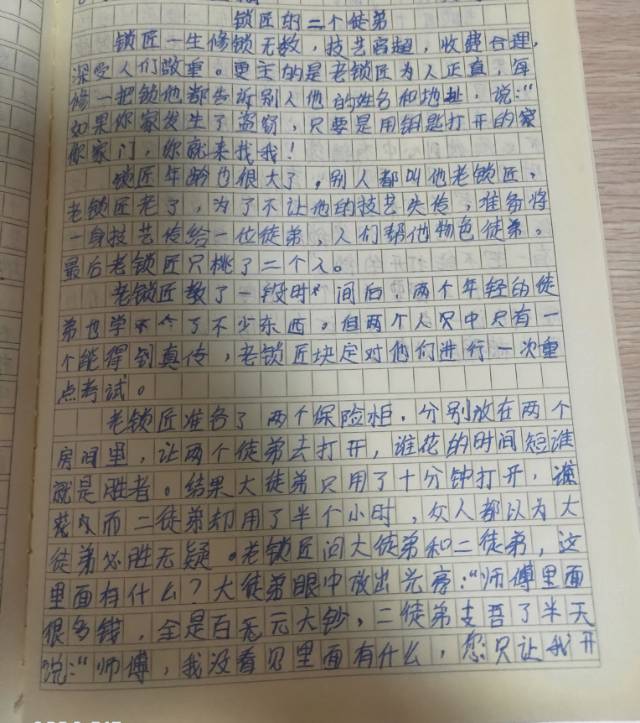 锁匠的二个徒弟
锁匠一生修锁无数，技艺高超，收费合理，
深受人们敬重。更主的是老锁匠为人正直，每
修一把锁他都告诉别人他的姓名和地址，说：“
如果你家发生了盗窃，只要是用钥匙打开的家
你家门，你就来找我！
锁匠年龄也很大了，别人都叫他老锁匠，
老锁匠老了，为了不让他的技艺失传，准备将
一身技艺传给一位徒弟，人们帮他物色徒弟。
最后老锁匠只挑了二个人。
老锁匠教了一段时间后，两个年轻的徒
弟也学了不少东西。但两个人只中只有一
个能得到真传，老锁匠决定对他们进行一次重
点考试。
老锁匠准备了两个保险柜，分别放在两个
房间里，让两个徒弟去打开，谁花的时间短谁
就是胜者。结果大徒弟只用了十分钟打开，
而二徒弟却用了半个小时，众人都以为大
徒弟必胜无疑。老锁匠问大徒弟和二徒弟，这
里面有什么？大徒弟眼中放出光亮：“师傅里面
很多钱，全是百元大钞，二徒弟支吾了半天
说：“师傅，我没看见里面有什么，您只让我开